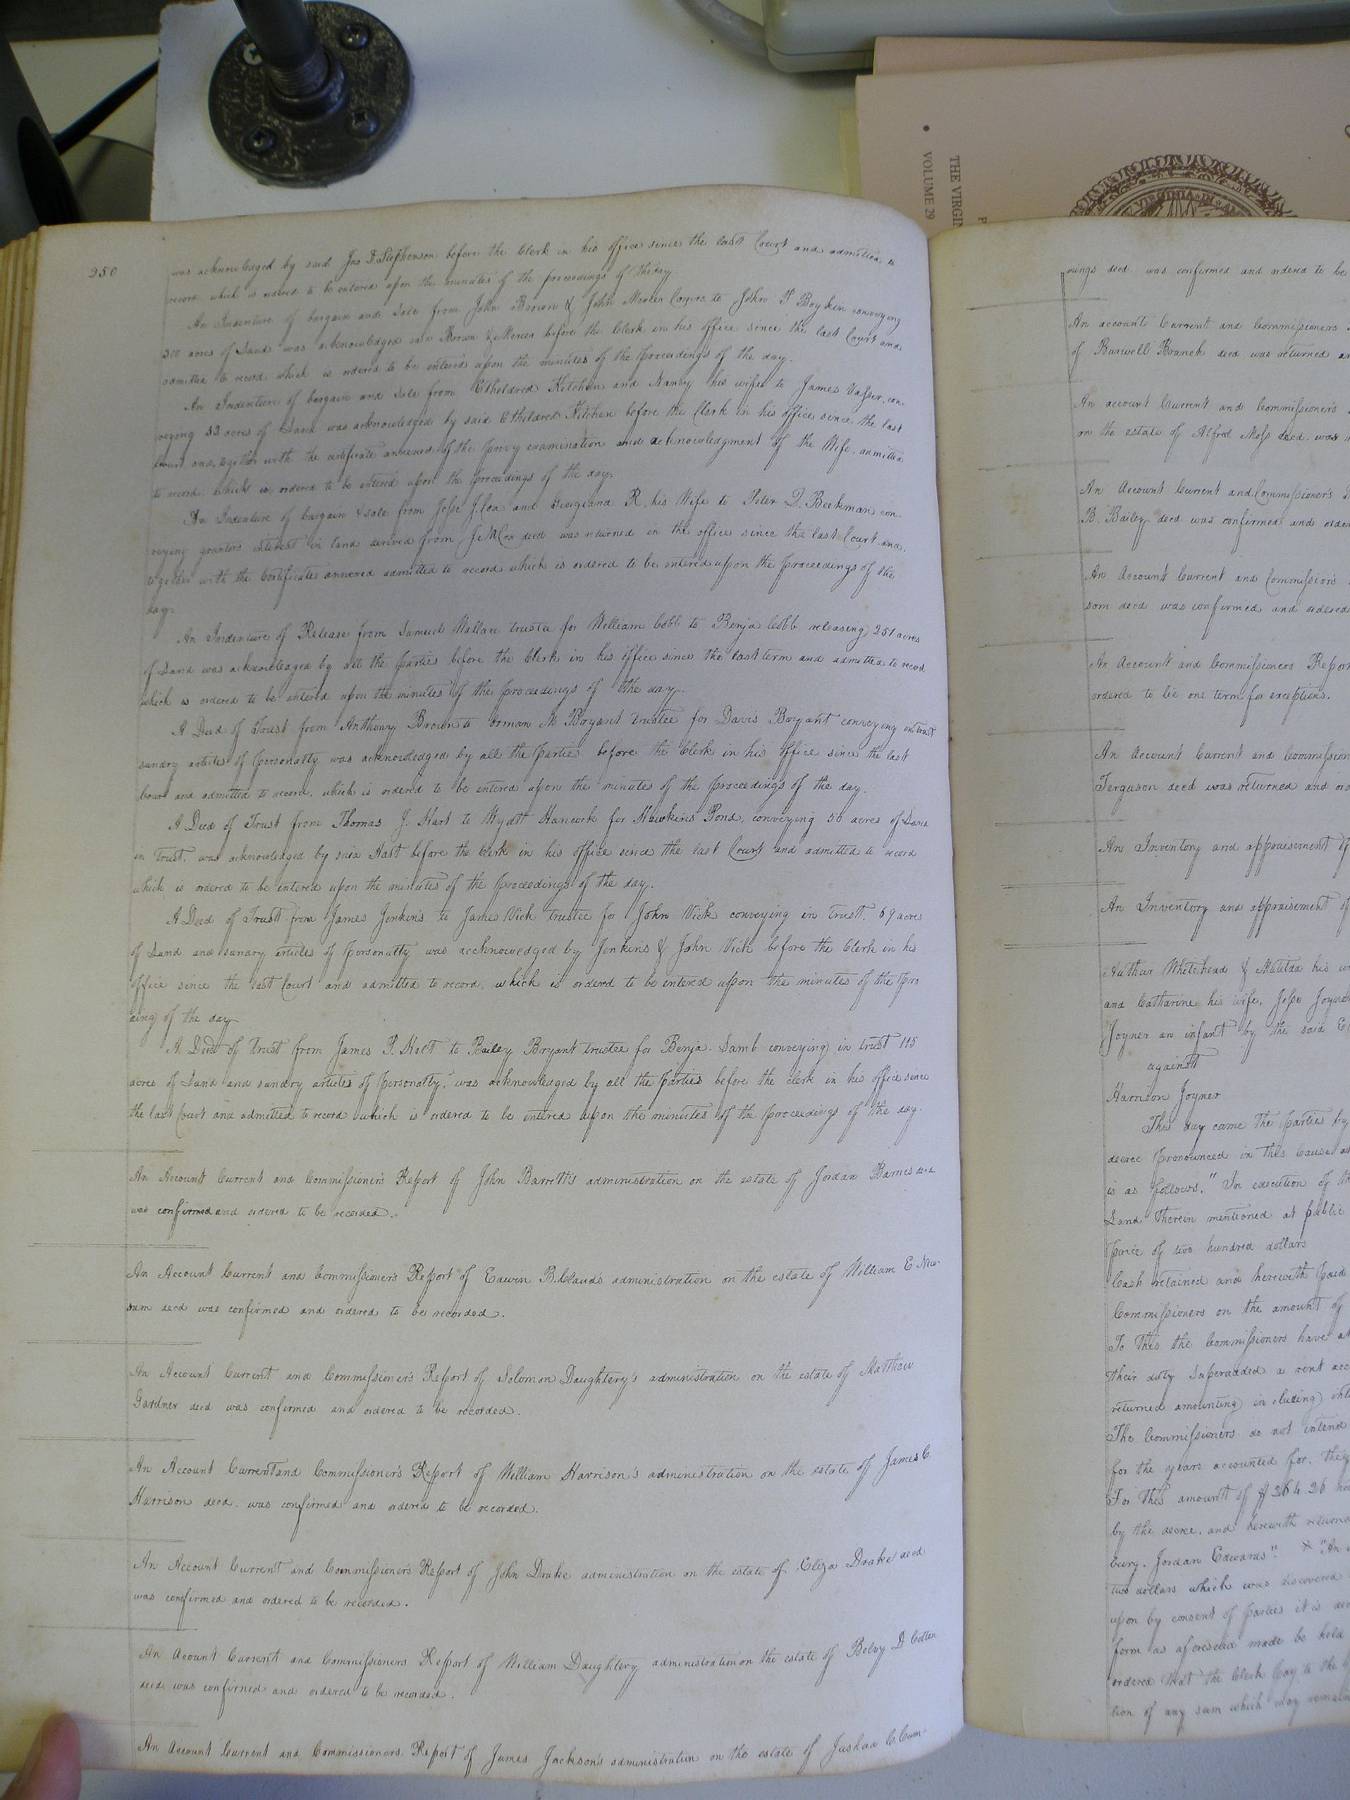 250
was acknowledged by said Jas D. Stephenson before the Clerk in his office since the last Court and admitted to
record which is ordered to be entered upon the minutes of the proceedings of the day
An Indenture of bargain and sale from John Brown & John Mercer to John T Boykin conveying
310 acres of Land was acknowledged Brown & Mercer before the Clerk in his office since the last Court and
admitted to record which is ordered to be entered upon the minutes of the proceedings of the day.
An Indenture of bargain and sale from Etheldred Kitchen and Nancy his wife to James Vasser, con-
veying 33 acres of Land was acknowledged by said Etheldred Kitchen before the Clerk in his office since the last
Court and together with the certificate annexed of the privy examination and acknowledgment of the Wife, admitted
to record which is ordered to be entered upon the proceedings of the day.
An Indenture of bargain & sale from Jesse J. Cox and Georgiana R. his Wife to Peter D. Beekman con-
veying grantors interest in land derived from Cox deed was returned in the office since the last Court and,
together with the Certificate annexed admitted to record which is ordered to be entered upon the proceedings of the
day.
An Indenture of Release from Samuel Wallace trustee for William Cobb to Benja Cobb releasing 251 acres
of Land was acknowledged by all the parties before the Clerk in his office since the last term and admitted to record
which is ordered to be entered upon the minutes of the proceedings of the day.
A Deed of Trust from Anthony Brown to Orman M Bryant trustee for Davis Bryant conveying in trust
sundry articles of personalty was acknowledged by all the parties before the Clerk in his office since the last
Court and admitted to record, which is ordered to be entered upon the minutes of the proceedings of the day.
A Deed of Trust from Thomas J. Hart to Wydtt Hancock for Hawkins Pond, conveying 56 acres of Land
in Trust, was acknowledged by said Hart before the Clerk in his office since the last Court and admitted to record
which is ordered to be entered upon the minutes of the proceedings of the day.
A Deed of Trust from James Jenkins to James Vick trustee for John Vick conveying in trust, 69 acres
of Land and sundry articles of personalty was acknowledged by Jenkins & John Vick before the Clerk in his
office since the last Court and admitted to record, which is ordered to be entered upon the minutes of the pro
ding of the day
A Deed of Trust from James P. Holt to Bailey Bryant trustee for Benja. Lamb conveying in trust 115
acres of Land and sundry articles of personalty, was acknowledged by all the parties before the clerk in his office since
the last Court and admitted to record which is ordered to be entered upon the minutes of the proceedings of the day.
An Account Current and Commissioner's Report of John Barrett's administration on the estate of Jordan Barnes decd
was confirmed and ordered to be recorded.
An Account Current and Commissioner's Report of Edwin B. Clauds administration on the estate of William E New-
som decd was confirmed and ordered to be recorded.
An Account Current and Commissioner's Report of Solomon Daughtery's administration on the estate of Matthew
Gardner decd was confirmed and ordered to be recorded.
An Account Current and Commissioner's Report of William Harrison's administration on the estate of James C.
Harrison decd. was confirmed and ordered to be recorded.
An Account Current and Commissioner's Report of John Drake administration on the estate of Eliza Drake decd
was confirmed and ordered to be recorded.
An Account Current and Commissioners Report of William Daughtery administration on the estate of D Cotten
decd was confirmed and ordered to be recorded.
An Account Current and Commissioners Report of James Jackson's administration on the estate of Joshua C. Cum-
mings decd was confirmed and ordered to be
An account Current and Commissioners
of Burwell Branch decd was returned
An account Current and Commissioner's
on the estate of Alfred Moss decd. was
An Account Current and Commissioner's
B. Bailey decd was confirmed and
An Account Current and Commission's
som decd was confirmed and ordered
An Account and Commissioners Report
ordered to lie one term for exceptions.
An Account Current and Commission
Ferguson decd was returned and
An Inventory and appraisement of
An Inventory and appraisement of
Arthur Whitehead & Matilda his
and Catharine his wife, Jesse Joyner
Joyner an infant by the said
against
Harrison Joyner
This day came the Parties by
decree pronounced in this Cause
is as follows, "In execution of the
Land therein mentioned at public
price of two hundred dollars
Cash retained and herewith paid
Commissioners on the amount of
To this the Commissioners have
their duty Superadded a rent
returned amounting including
The Commissioners do not intend
for the years accounted for, they
For this amount of $264.26
by the decree, and herewith returned
Jordan Edwards". X "An
two dollars which was discovered
upon by consent of parties it is
form as aforesaid made be held
ordered that the Clerk pay to the
tion of any sum which may remain
THE VIRGIN
VOLUME 29
VIRGINIA IN